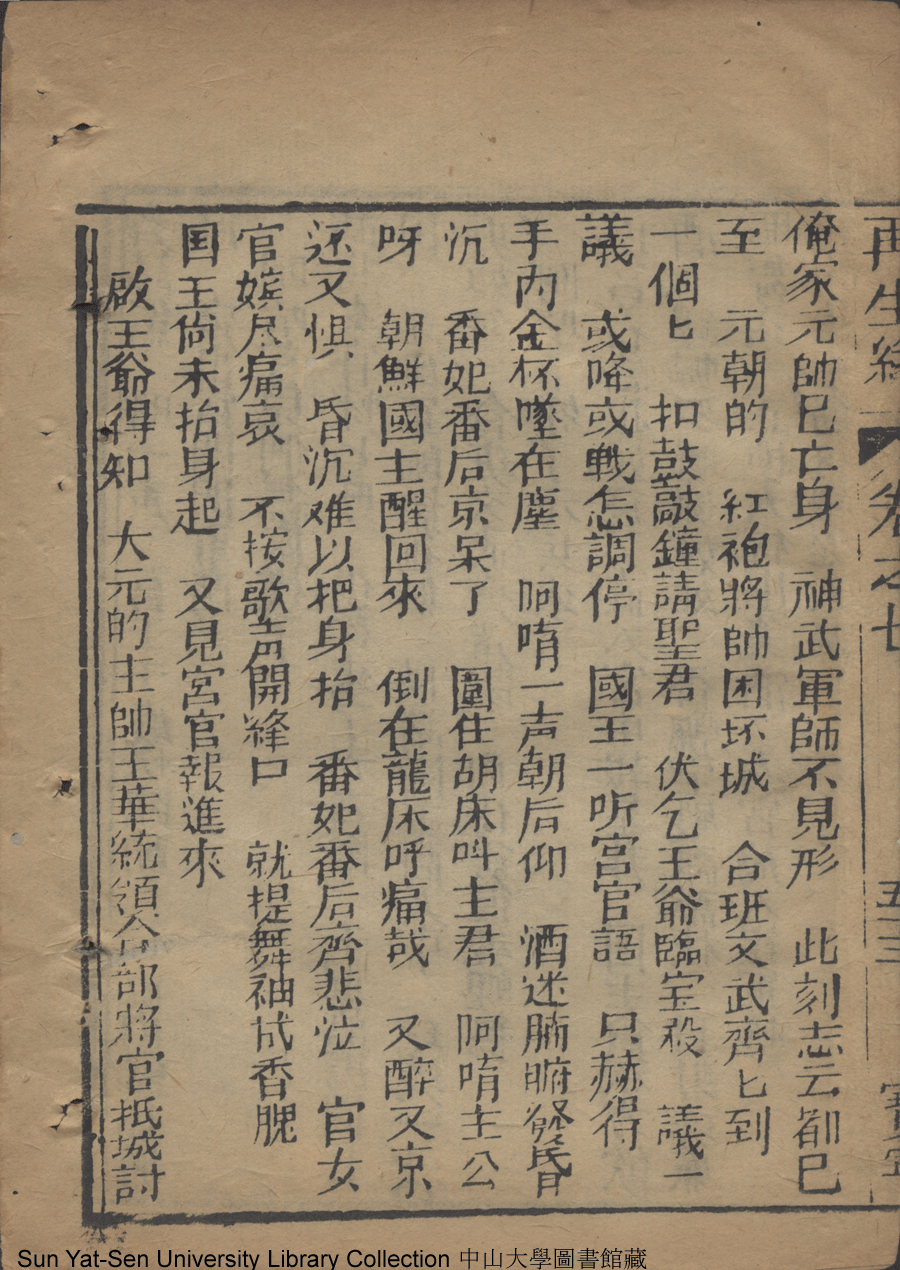 再生緣 卷之七 五三 寶寧
俺家元帥已亡身 神武軍師不見形 此刻志云都已
至 元朝的 紅袍將帥困坏城 合班文武齊匕到
一個匕 扣鼓敲鐘請聖君 伏乞王爺臨宝殺 議一
議 或降或戦怎調停 國王一听宫官語 只赫得
手内金杯墜在塵 呵唷一声朝后仰 酒迷腑發昏
沉 番妃番后京呆了 圍住胡床叫主君 呵唷主公
呀 朝鮮國主醒回來 倒在龍床呼痛哉 又醉又京
还又惧 昏沉难以把身抬 番妃番后齊悲泣 官女
官嬪尽痛哀 不按歌声開絳口 就提舞袖拭香腮
国王尚未抬身起 又見宮官報進來
啟王爺得知 大元的主帥王華統領合部將官抵城討
Sun Yat-Sen University Library Collection 中山大學圖書館藏